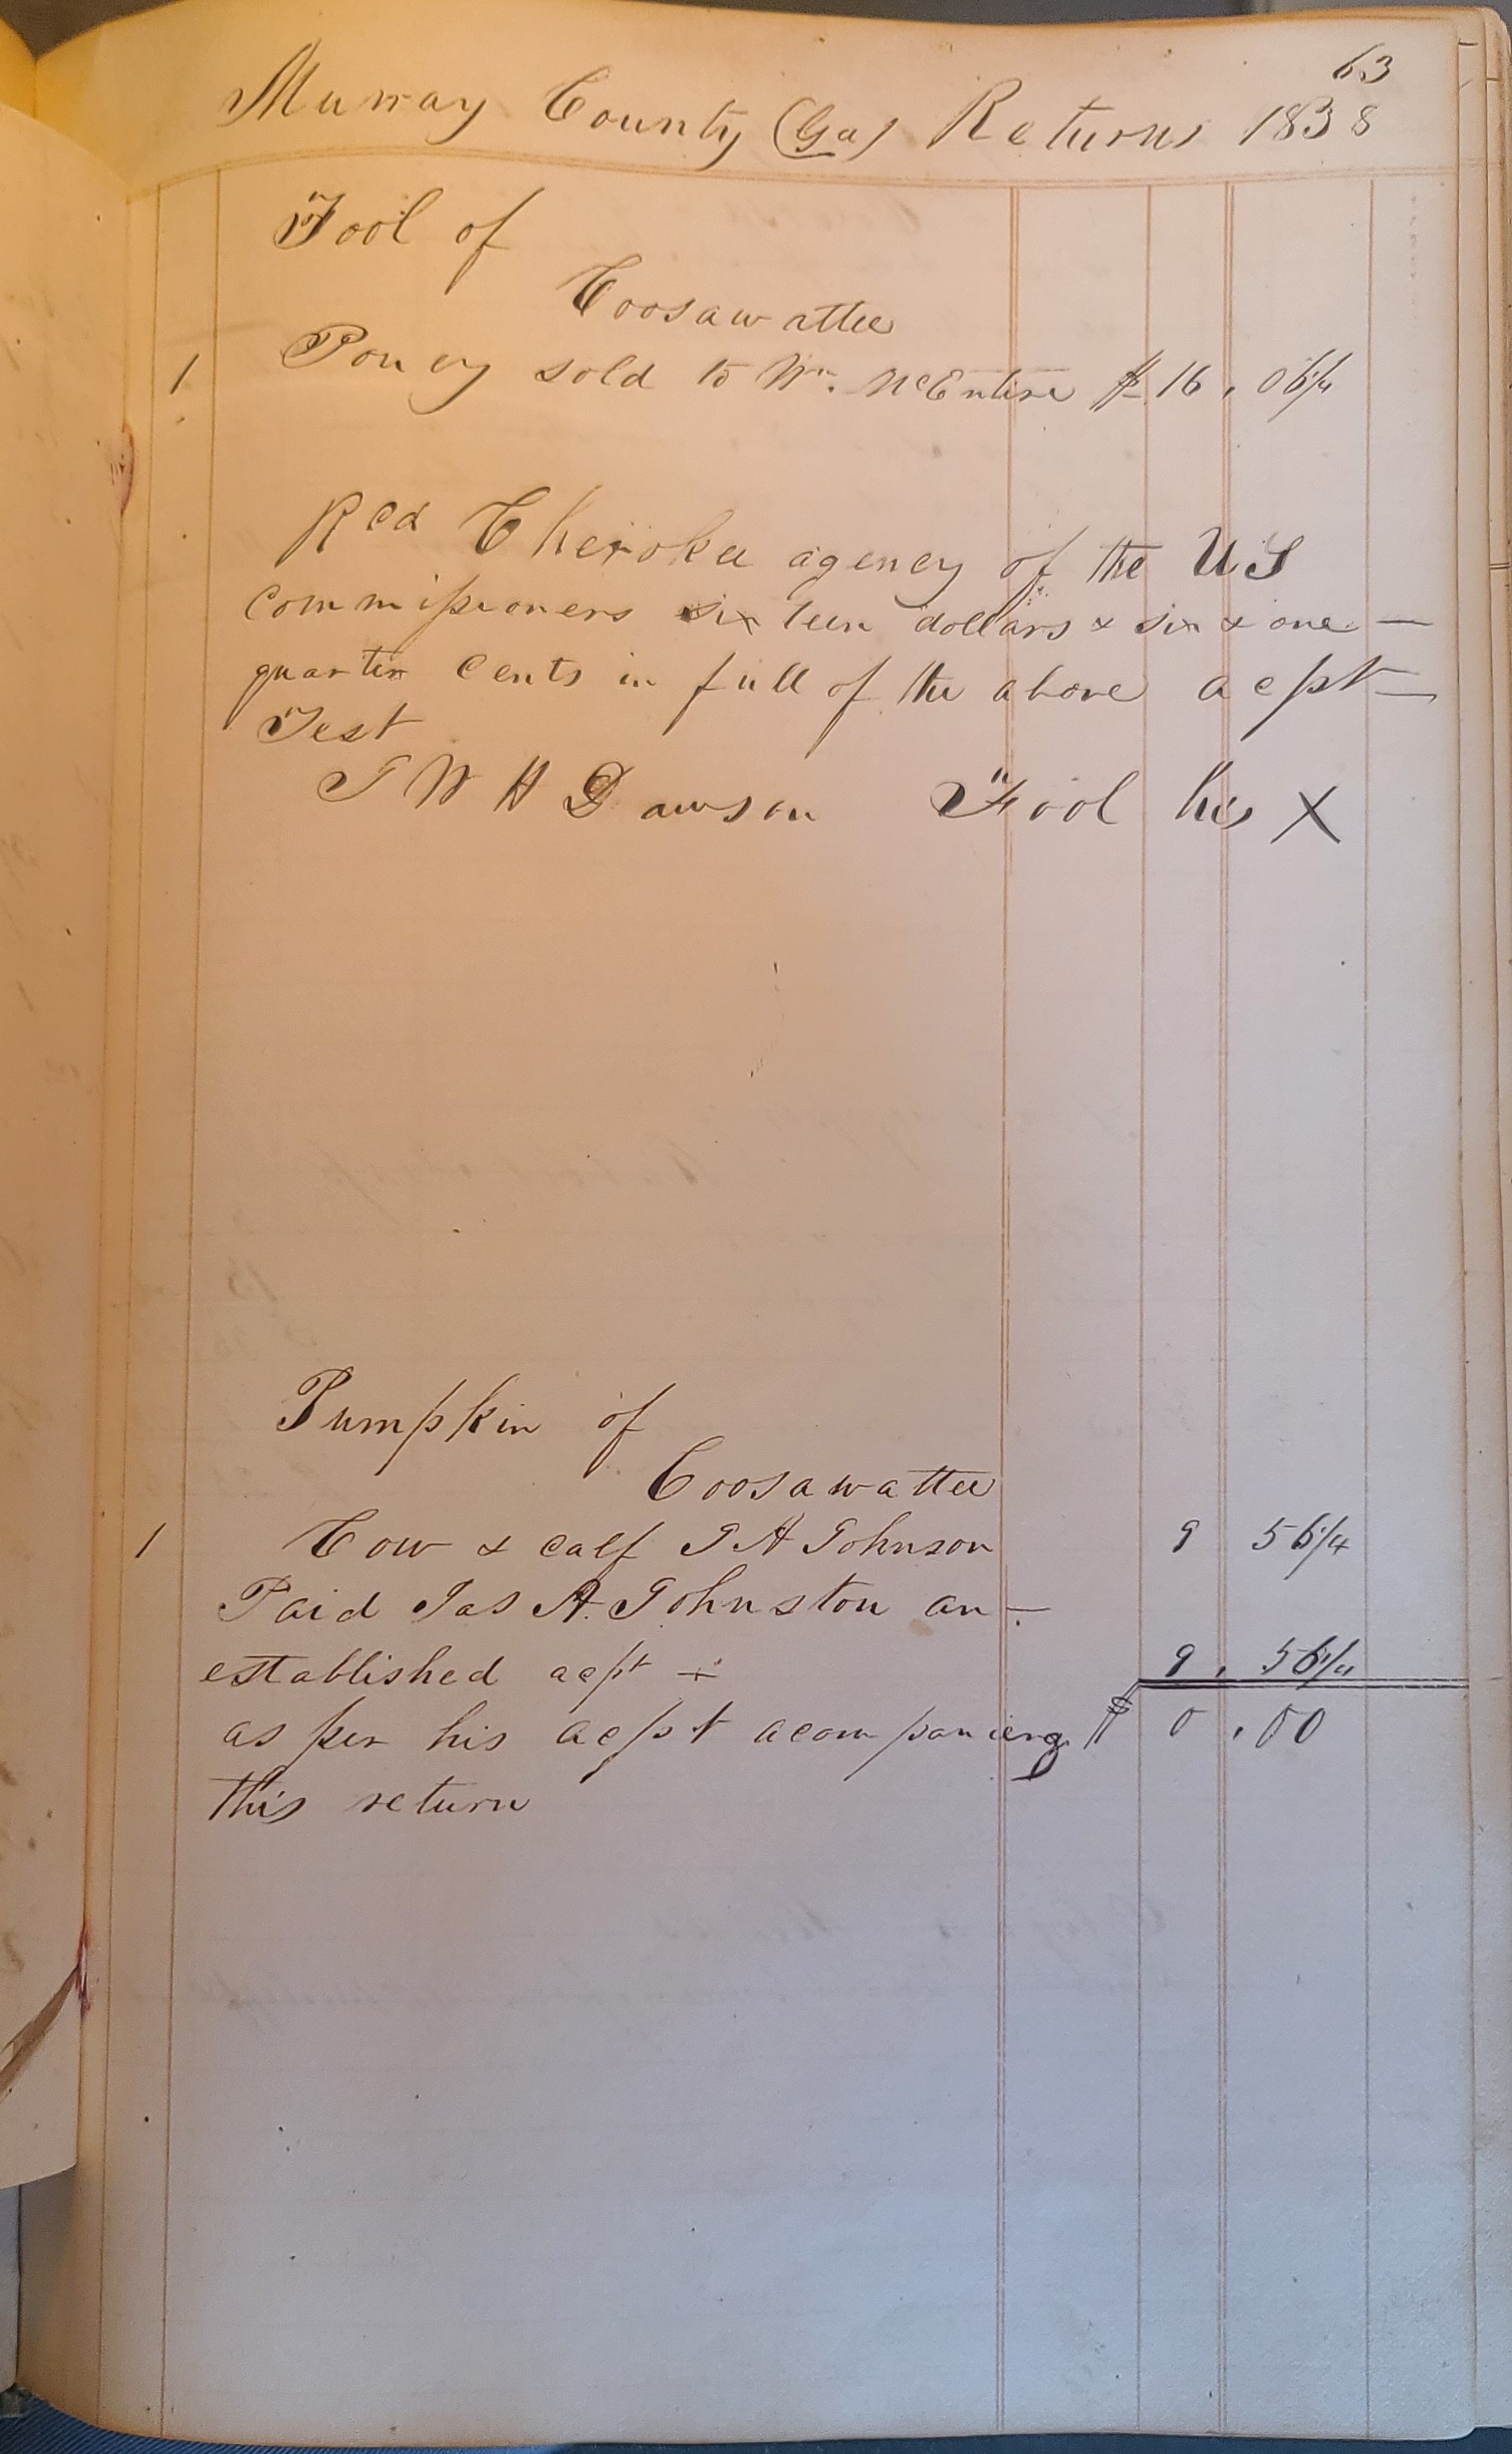 63
Murray County (Ga) Returns 1838
Fool of
Coosawattee
1 Poney sold to Wm. McEntire $ 16 . 06 1/4
Recd Cherokee agency of the US
commissioners sixteen dollars & six & one —
quarter cents in full of the above acpt —
Test
J W H Dawson Fool his X
Pumpkin of
Coosawattee
1 Cow & calf J A Johnson 9 56 1/4
Paid Jas A. Johnston an —
established acpt + 9 . 56 1/4
as per his acpt acompanieng $ 0 . 00
this return